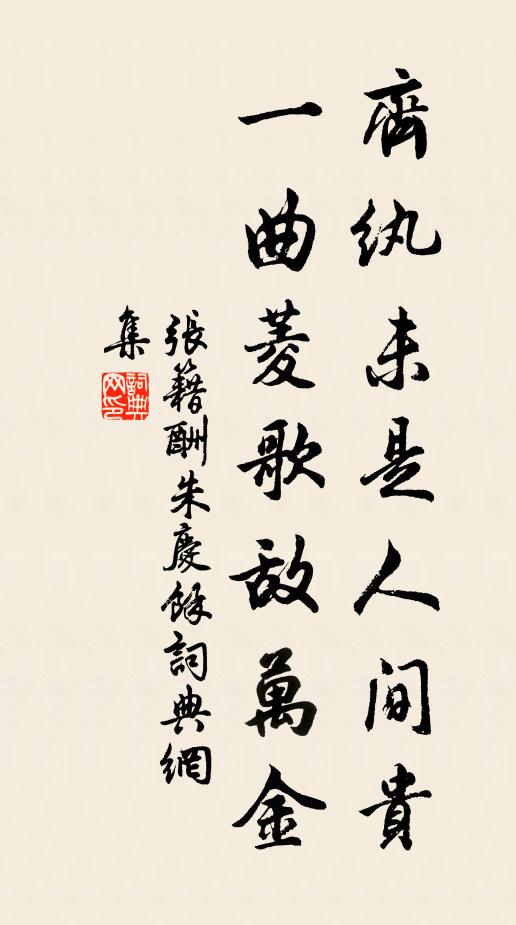 齊紈未是人間貴
一曲菱歌敵萬金
張籍酬朱慶餘詞典網
集
詞典
网印